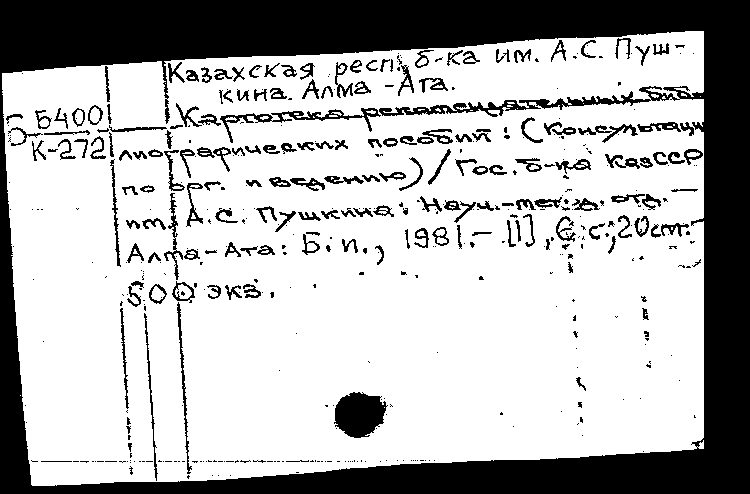 Казахская респ. б-ка им. А.С. Пуш-
кина. Алма-Ата.
Б 5400
К-272
Картотека рекомендательных биб-
лиографических пособий: (Консультации
по орг. и ведению) / Гос. б-ка КазССР
им. А.С. Пушкина; Науч.-метод. отд. —
Алма-Ата: Б.и., 1981.- [1], 6 с.; 20 см.-
500 экз.